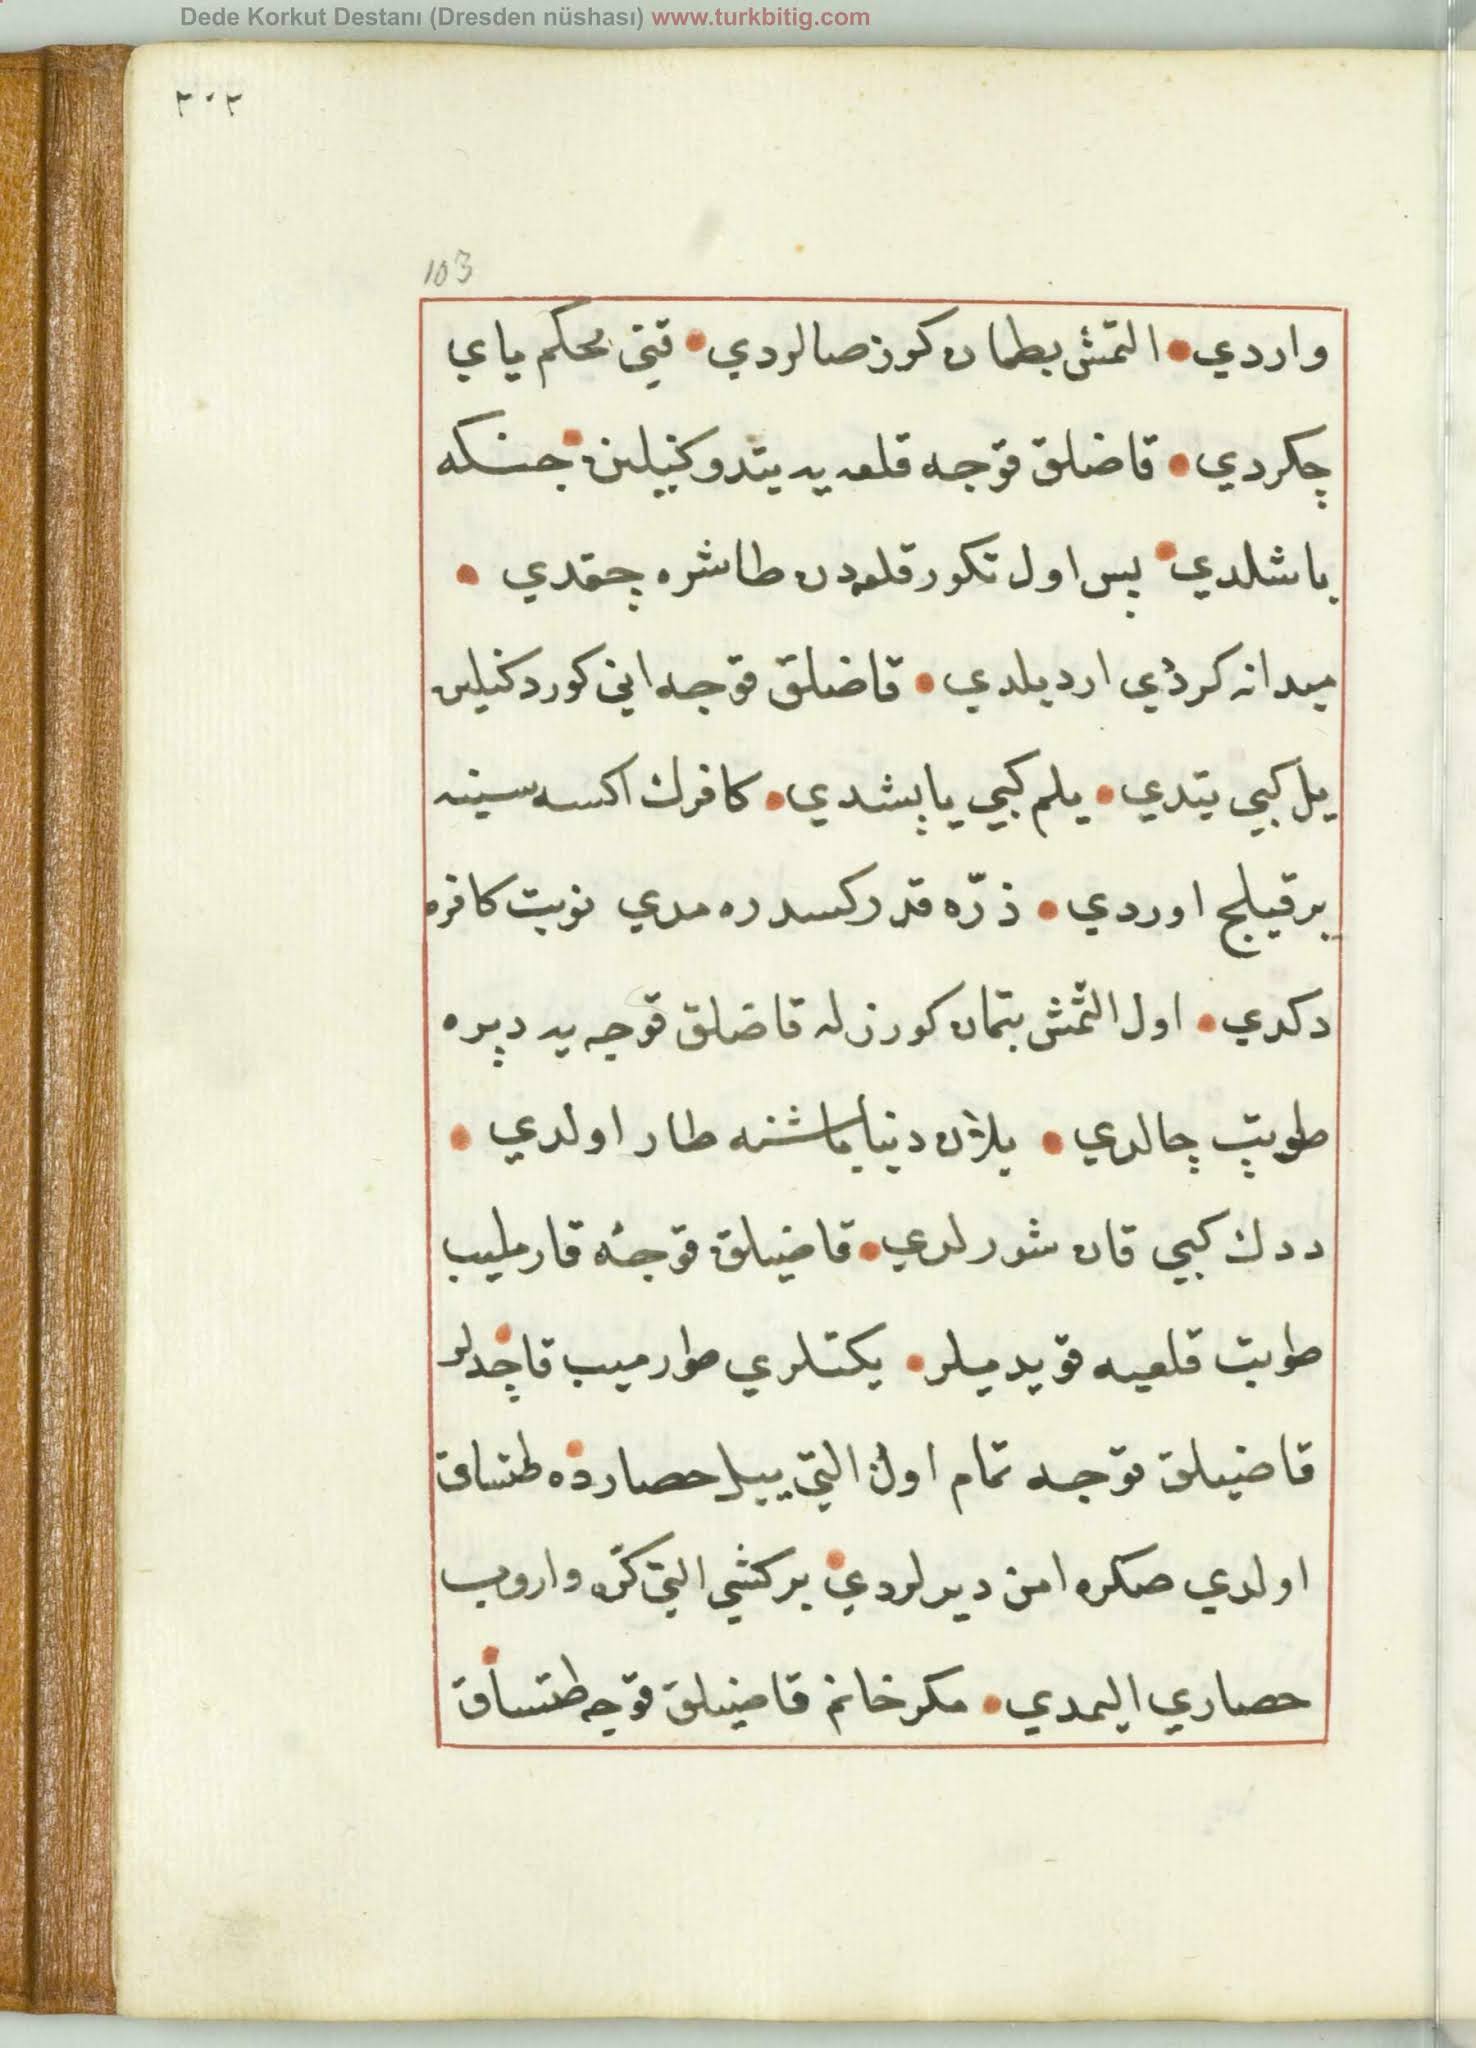 Dede Korkut Destanı (Dresden nüshası) www.turkbitig.com
٢٠٢
103
واردي • التمش بطمان كورز صالردي • قتي محكم ياي
چكردي • قاضلق قوجه قلعه يه يتدوكنيلين • جنكه
باشلدي • پس اول تكور قلعه دن طاشره چقدي •
ميدانه كردي ار ديلدي • قاضلق قوجه اني كوردكنيلين
يل كبي يتدي • يلم كبي ياپشدي • كافرك اكسه سينه
بر قيلج اوردي • ذرّه قدر كسدره مدي نوبت كافره
دكدي • اول التمش بتمان كورزله قاضلق قوجه يه دپره
طوتپ چالدي • يلان دنيا باشنه طار اولدي •
ددك كبي قان شورلدي • قاضيلق قوجه قارمليب
طوتب قلعيه قويديلر • يكتلري طورميب قاچدلر
قاضيلق قوجه تمام اون التي ييل حصارده • طتساق
اولدي صكره امن ديرلردي • بر كشي التي كره واروب
حصاري اليمدي • مكر خانم قاضيلق قوجه طتساق •